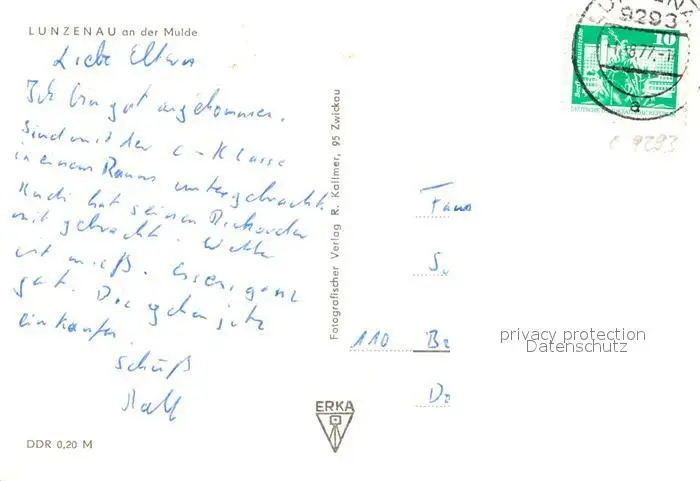 LUNZENAU an der Mulde
Liebe Eltern
Ich bin gut angekommen.
Sind mit der c-Klasse
in einem Raum untergebracht.
Rudi hat seinen Rekorder
mit gebracht. Wetter
ist mieß. Essen, ganz
gut. Die gehen jetz
einkaufen.
Schüß
Ralf
DDR 0,20 M
Fotografischer Verlag R. Kallmer, 95 Zwickau
ERKA
9293
10
77.-1
a
DEUTSCHE DEMOKRATISCHE REPUBLIK
c 9293
Fam
110 Be
privacy protection
Datenschutz